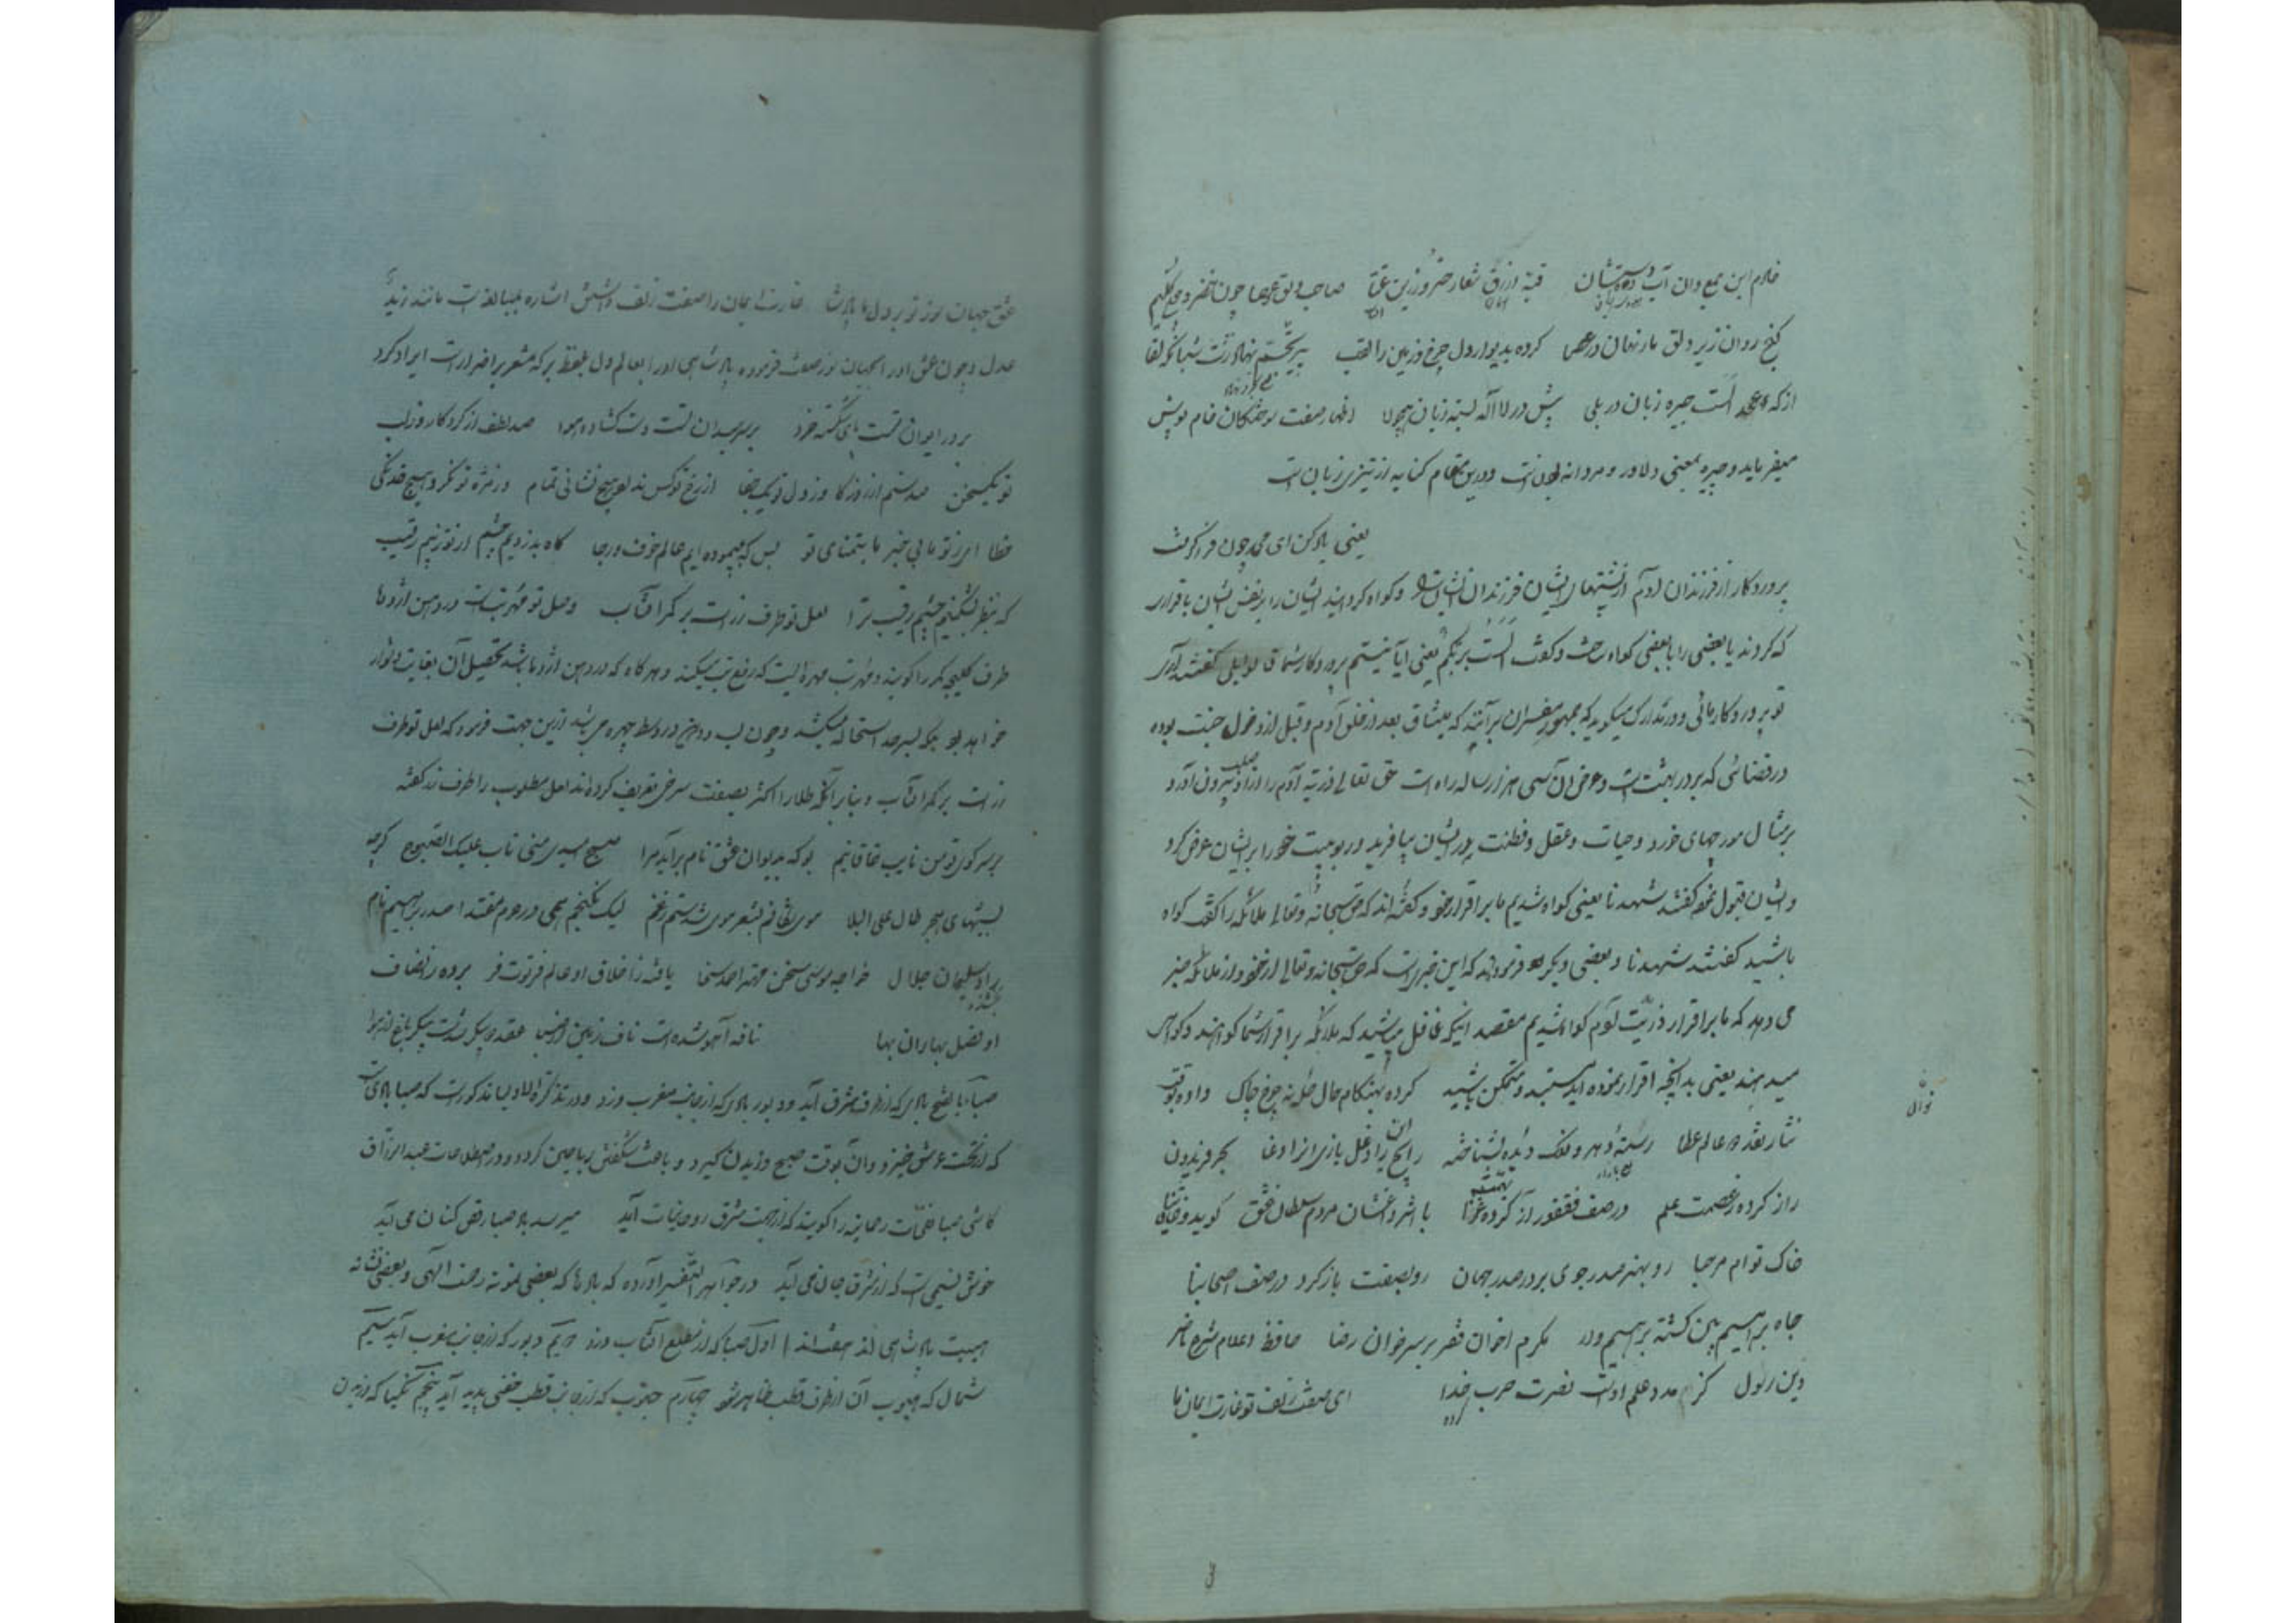 خلام این جمع دان آب ده دستشان قبهٔ ازرق شعار خسرو زرین غطا صاحب دلق و عصا چون خضر و چون کلیم
گنج روان زیر دلق مار نهان در عصا کرده بدیوار دل چرخ و زمین را لقب پیر تحشم نهاد زشت شبانگه لقا
از که عهد الست چیره زبان در بلی پیش در لا اله بسته زبان همچو لا اظهار صفت سوختگان خام پوش
میفرماید و چیره بمعنی دلاور و مردانه بودنست و درین مقام کنایه از تیزی زبان است
یعنی یاد کن ای محمد چون فراگرفت
پروردگار از فرزندان آدم از پشتهای ایشان فرزندان ایشان را و گواه گردانید ایشان را بر نفس ایشان باقراری
که کردند یا بعضی را با بعضی گواه ساخت و گفت الست بربکم یعنی آیا نیستم پروردگار شما قالوا بلی گفتند آری
تو پروردگار مائی و در مدارک میگوید که جمهور مفسران برآنند که میثاق بعد از خلق آدم و قبل از دخول جنت بوده
در فضائی که بر در بهشت است و عرض آن سی هزار ساله راه است حق تعالی ذریه آدم را از صلب او بیرون آورد
بر مثال مورچهای خرد و حیات و عقل و فطنت در ایشان بیافرید و ربوبیت خود را بر ایشان عرض کرد
و ایشان قبول نموده گفتند شهدنا یعنی گواه شدیم ما بر اقرار خود و گفته اند که حق سبحانه و تعالی ملائکه را گفت گواه
باشید گفتند شهدنا و بعضی دیگر فرموده اند که این خبریست که حق سبحانه و تعالی از خود و از ملائکه خبر
می دهد که ما بر اقرار ذریت آدم گواه شدیم مقصد اینکه غافل مباشید که ملائکه بر اقرار شما گواهند و گواهی
میدهند یعنی بدانچه اقرار نموده اید مستعد و متمکن باشید کرده بهنگام حال حله نه چرخ چاک داده بوقت
نثار نقد دو عالم عطا رستهٔ دهر و فلک دیده و بشناخته رایج این را دغل بازی آن را دغا بحر فریدون
راز کرده ز عصمت علم در صف فغفور آز کرده غزا با اثر داغشان مردم سلطان عشق گوید و خاقانیا
خاک توام مرحبا رو بهنر صدر جوی بر در صدر جهان رو بصفت بازگرد در صف اصحابنا
جاه براهیم بین گشته براهیم وار مکرم اخوان فقر بر سر خوان رضا حافظ اعلام شرع ناصر
دین رسول کز مدد علم اوست نصرت حزب خدا ای صفت زلف تو غارت ایمان ما
عشق جهان سوز تو بر دل ما پادشا غارت ایمان را صفت زلف داشتن اشاره بمبالغه است مانند زید
عدل و چون عشق او را بجهان سوز صفت فرموده پادشاهی او را بعالم دل بلفظ بر که مشعر بر اضرار است ایراد کرد
بر در ایوان تست پای شکسته خرد بر سر میدان تست دست گشاده هوا صد لطف از کردگار وز لب
تو یکسخن صد ستم از روزگار وز دل تو یک جفا از رخ تو کس نداد هیچ نشانی تمام وز مژه تو نکرد هیچ خدنگی
خطا از تو ما بی خبر ما بتمنای تو بس که بپیموده ایم عالم خوف و رجا گاه بدزدیم چشم از تو ز بیم رقیب
که بنظر بشکنیم چشم رقیب ترا لعل تو طرف زر است بر کمر آفتاب وصل تو مهره تب است در دهن اژدها
طرف کلیچه کمر را گویند و مهره تب مهره ایست که رفع تب میکند و هرگاه که در دهن اژدها باشد تحصیل آن بغایت دشوار
خواهد بود بلکه بسرحد استحاله میکشد و چون لب و دهن در وسط چهره می باشد ازین جهت فرمود که لعل تو طرف
زر است بر کمر آفتاب و بنابر آنکه طلا را اکثر بصفت سرخی تعریف کرده اند لعل مطلوب را طرف زر گفته
بر سر کوی تو من نایب خاقانیم بو که بدیوان عشق نام برآید مرا صبح سپیدی منی ناب علیک الصبوح گرچه
بشبهای هجر طال علی البلا موی شکافم بشعر موی شدستم ز غم لیک نگنجم همی در حرم مقتدا صدر براهیم نام
راد سلیمان جلال خواجه موسی سخن مهتر احمد سخا یافته ز اخلاق او عالم فرتوت فر برده ز انصاف
او فضل بهاران بها نافه آهو شده است ناف زمین از صبا عقد دو پیکر شدست پیکر باغ از هوا
صبا بالفتح بادی که از طرف مشرق آید و دبور بادی که از جانب مغرب وزد و در تذکرة الاولیا مذکورست که صبا بادی است
که از تحت عرش خیزد و آن بوقت صبح وزیدن گیرد و باعث شگفتن ریاحین گردد و در اصطلاحات عبد الرزاق
کاشی صبا نفحات رحمانیه را گویند که از جهت مشرق روحانیات آید میرسد باد صبا رقص کنان می آید
خوش نسیمی است که از مشرق جان می آید در جواهر التفسیر آورده که بادها که بعضی نمونه رحمت الهی و بعضی نشانه
هیبت پادشاهی اند هفت اند اول صبا که از مطلع آفتاب وزد دویم دبور که از جانب مغرب آید سیم
شمال که هبوب آن از طرف قطب ظاهر شود چهارم جنوب که از جانب قطب خفی پدید آید پنجم نکبا که وزیدن